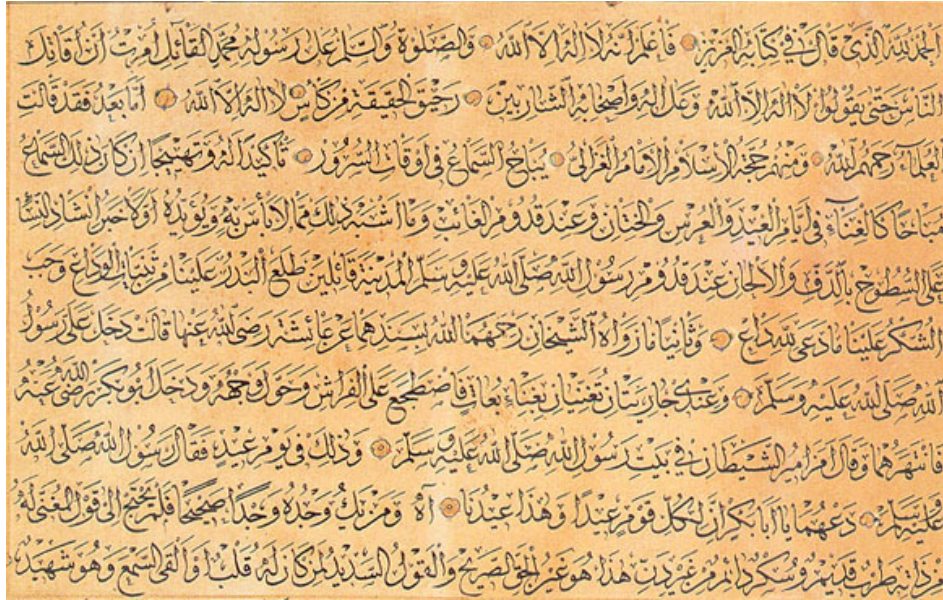 الحمد لله الذى قال فى كتابه العزيز فاعلم انه لا اله الا الله والصلوة والسلم على رسوله محمد القائل امرت أن أقاتل
الناس حتى يقولوا لا اله الا الله وعلى اله واصحابه الشاربين رحيق الحقيقة من كأس لا اله الا الله أما بعد فقد قالت
العلماء رحمهم الله ومنهم حجة الاسلام الامام الغزالى يباح السماع فى اوقات السرور تأكيدا له وتهييجا ان كان ذلك السماع
مباحا كالغناء فى ايام العيد والعرس والختان وعند قدوم الغائب وما اشبه ذلك مما لا بأس به ويؤيده اولا خبر انشاد النساء
على السطوح بالدف والالحان عند قدوم رسول الله صلى الله عليه وسلم المدينة قائلين طلع البدر علينا من ثنيات الوداع وجب
الشكر علينا ما دعى لله داع وثانيا ما رواه الشيخان رحمهما الله بسندهما عن عائشة رضى الله عنها قالت دخل على رسول
الله صلى الله عليه وسلم وعندى جاريتان تغنيان بغناء بعاث فاضطجع على الفراش وحول وجهه ودخل أبو بكر رضى الله عنه
فانتهرهما وقال امزامير الشيطان فى بيت رسول الله صلى الله عليه وسلم وذلك فى يوم عيد فقال رسول الله صلى الله
عليه وسلم دعهما يا أبا بكر ان لكل قوم عيدا وهذا عيدنا آه ومن يك وجده وجدا صحيحا فلم يحتج الى قول المغنى له
من ذاته طرب قديم وسكر دائم من غير دن هذا هو عين الحق الصريح والقول السديد لمن كان له قلب او القى السمع وهو شهيد